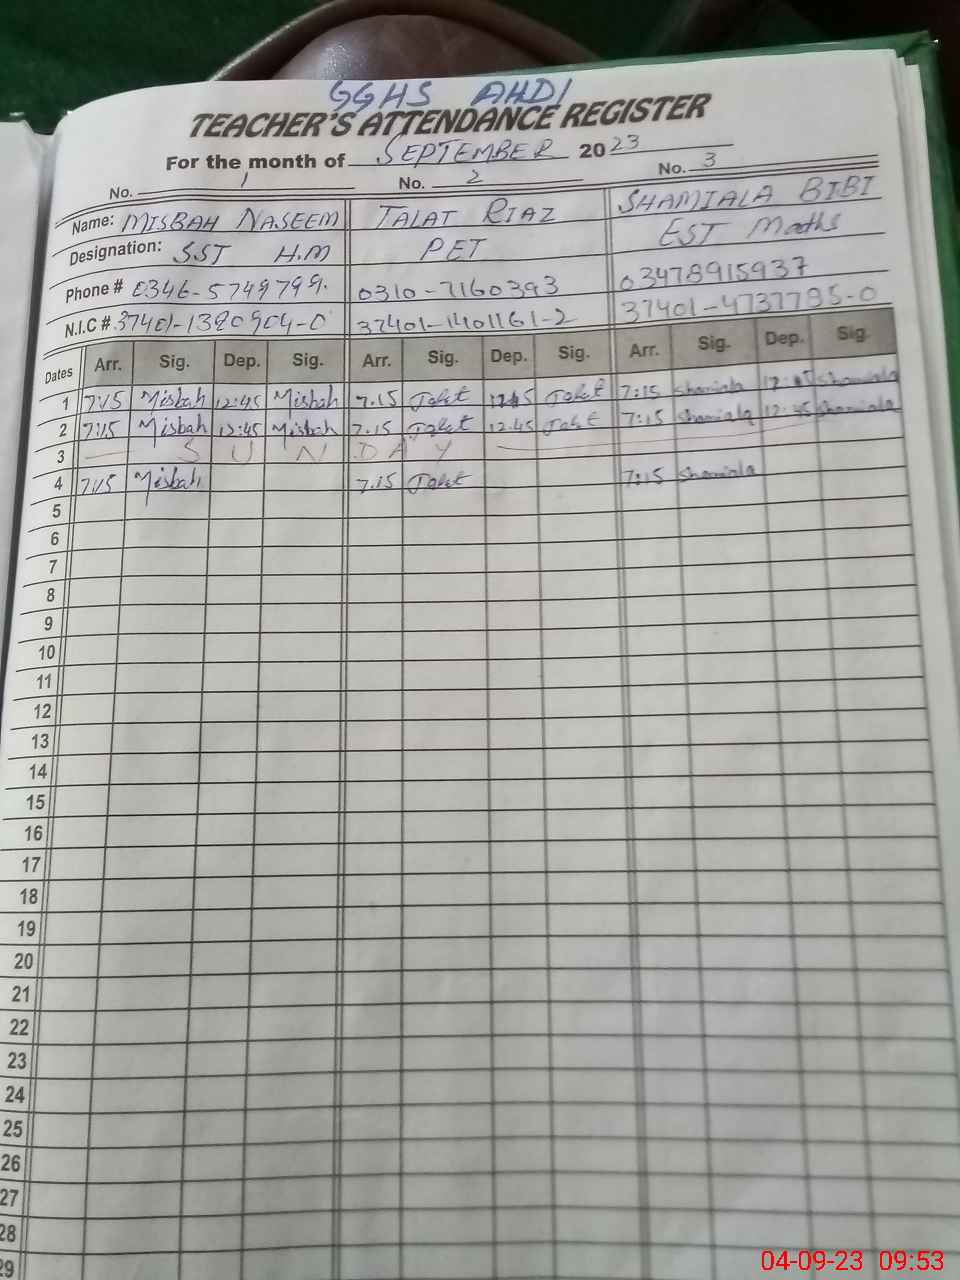 GGHS AHDI
TEACHER'S ATTENDANCE REGISTER
For the month of SEPTEMBER 2023
No. 1 No. 2 No. 3
Name: MISBAH NASEEM TALAT RIAZ SHAMIALA BIBI
Designation: SST H.M PET EST Maths
Phone # 0346-5749799. 0310-7160393 03478915937
N.I.C #.37401-1390904-0 37401-1401161-2 37401-4737795-0
Dates Arr. Sig. Dep. Sig. Arr. Sig. Dep. Sig. Arr. Sig. Dep. Sig.
1 7:15 Misbah 12:45 Misbah 7.15 Talat 12.45 Talat 7:15 Shamiala 12:45 Shamiala
2 7:15 Misbah 12:45 Misbah 7.15 Talat 12.45 Talat 7:15 Shamiala 12:45 Shamiala
3 — SUNDAY —
4 7:15 Misbah 7.15 Talat 7:15 Shamiala
5
6
7
8
9
10
11
12
13
14
15
16
17
18
19
20
21
22
23
24
25
26
27
28
29
04-09-23 09:53